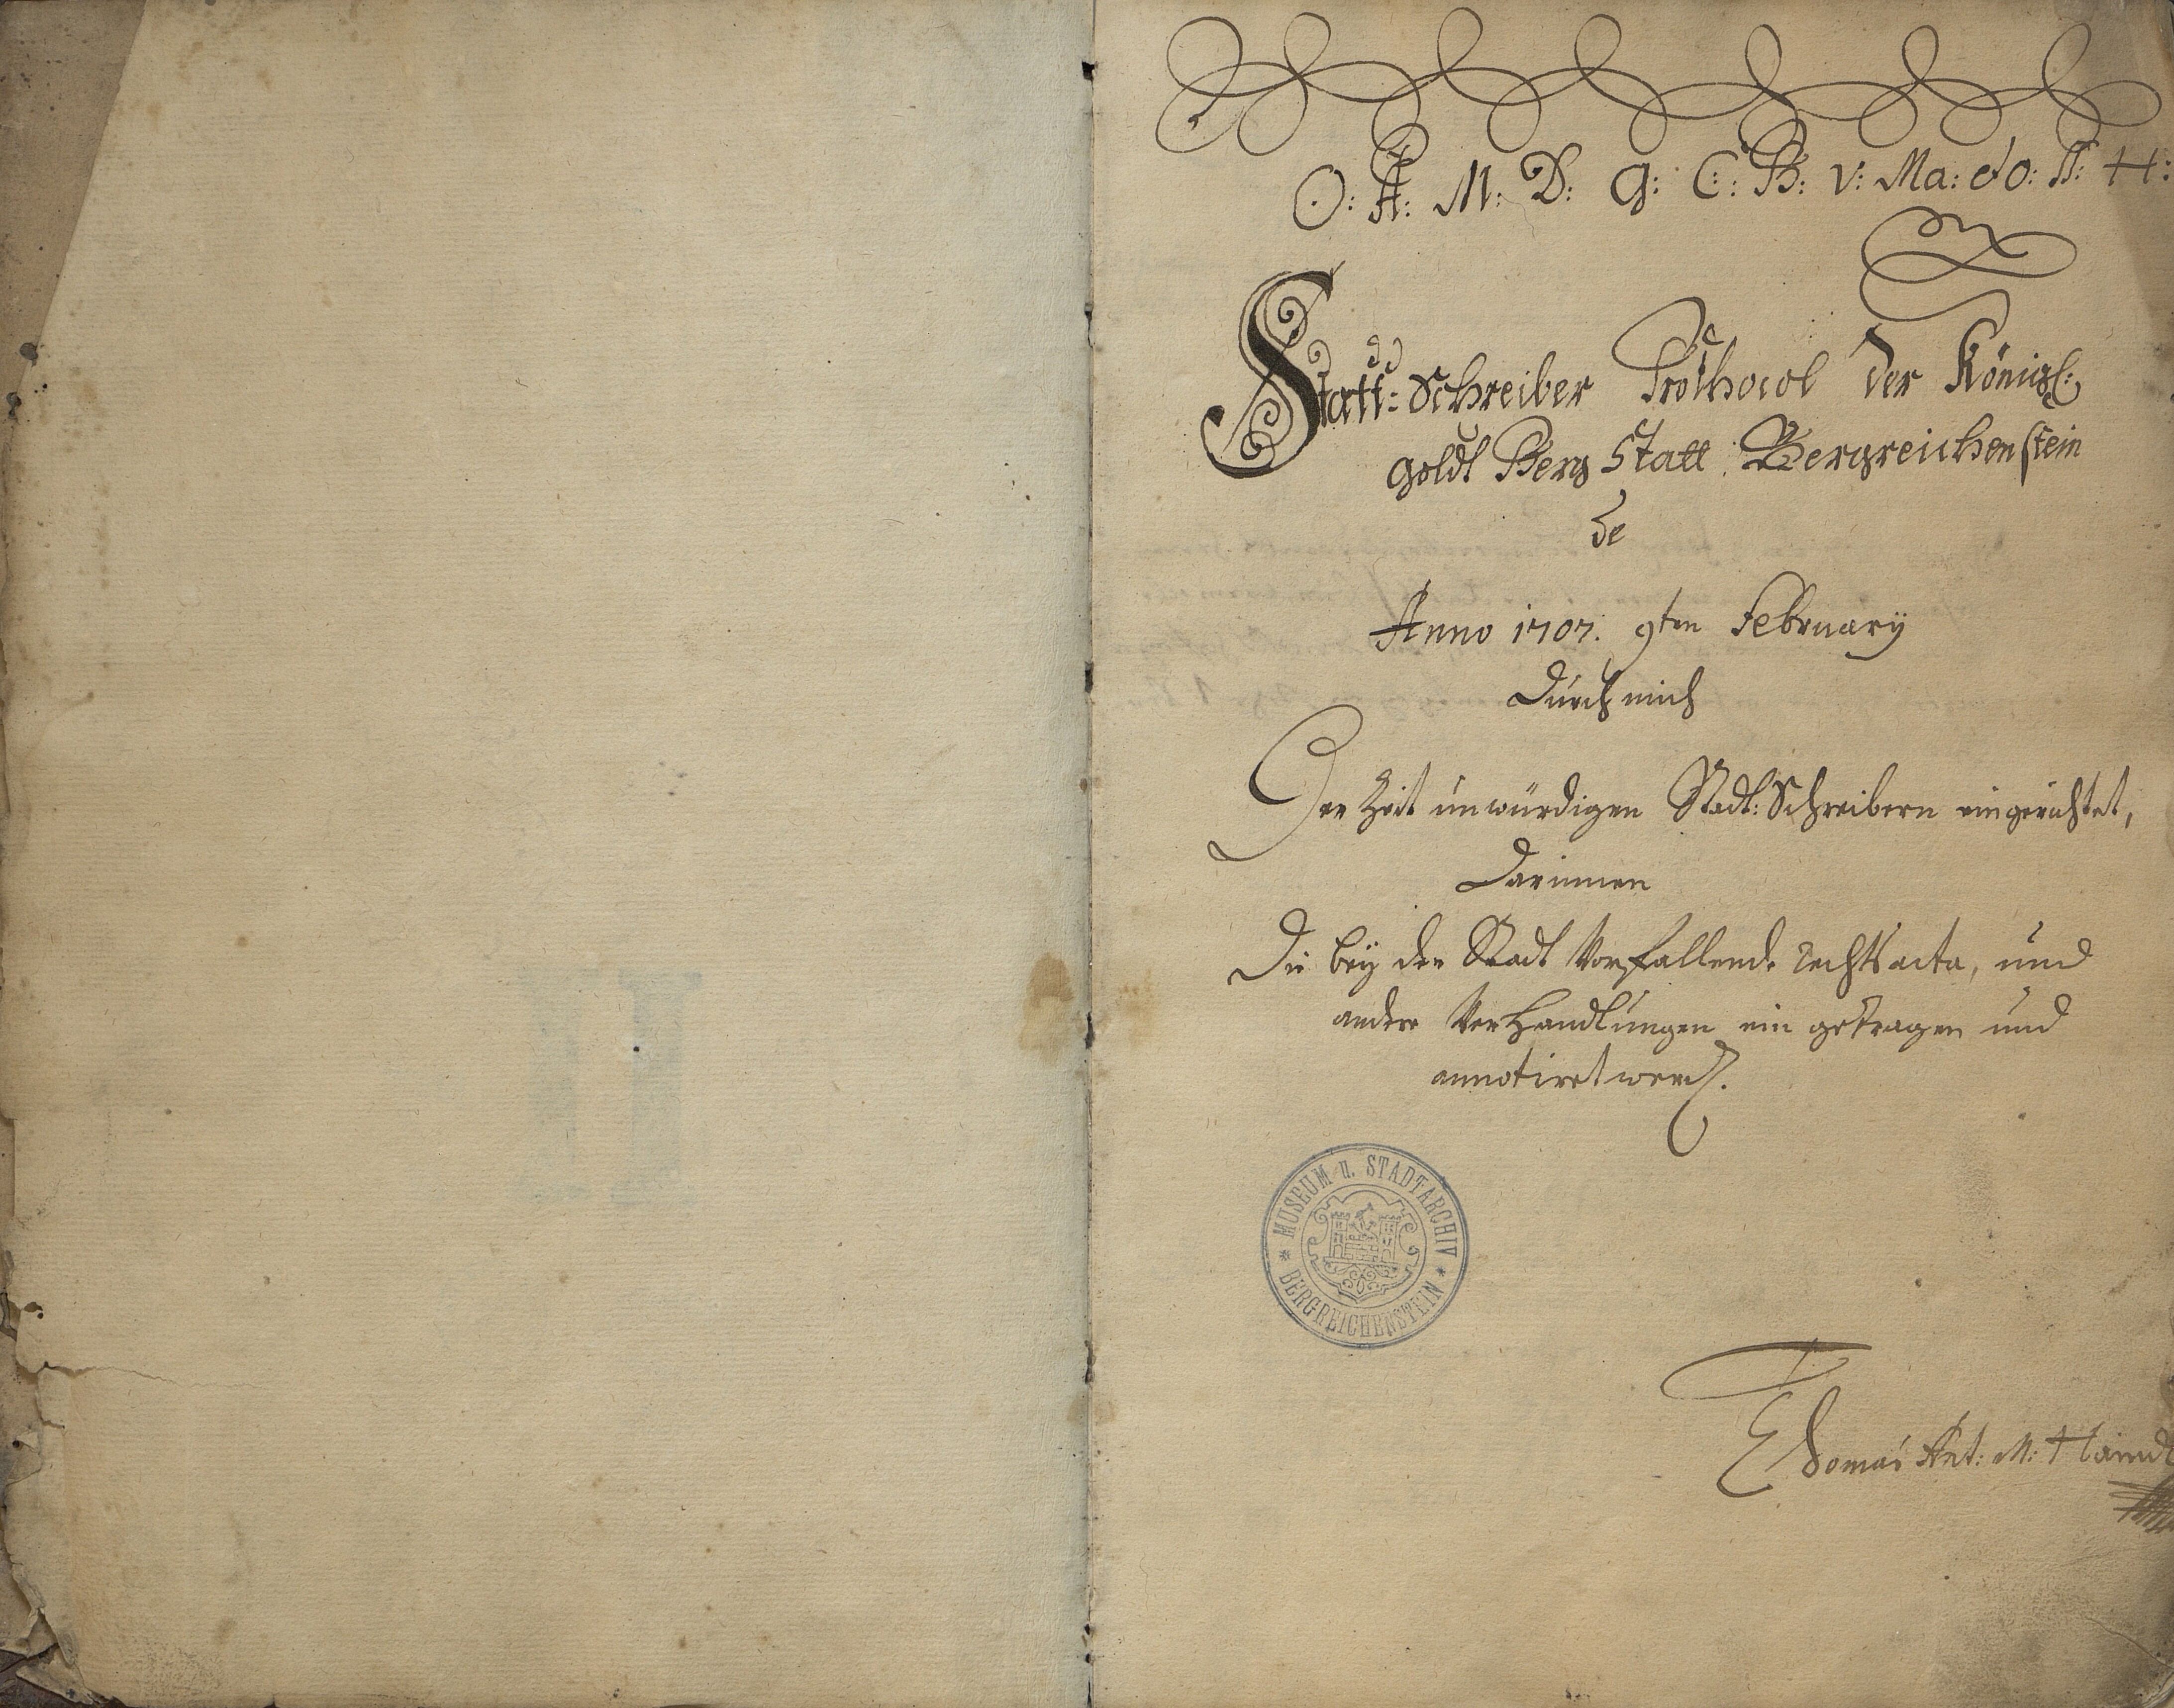 O: A: M: D: G: C: B: V: Ma: et O: S: H:
Statt: Schreiber Prothocol der Königl:
Goldt Berg Statt Bergreichenstein
De
Anno 1707. 9ten February
Durch mich
Der Zeit unwürdigen Stadt: Schreibern eingerichtet,
Darinnen
Die beÿ der Stadt Vorfallende Rechts acta, und
andere Verhandlungen ein getragen und
annotiret werd.
MUSEUM u. STADTARCHIV
* BERGREICHENSTEIN *
Thomas Ant: M: